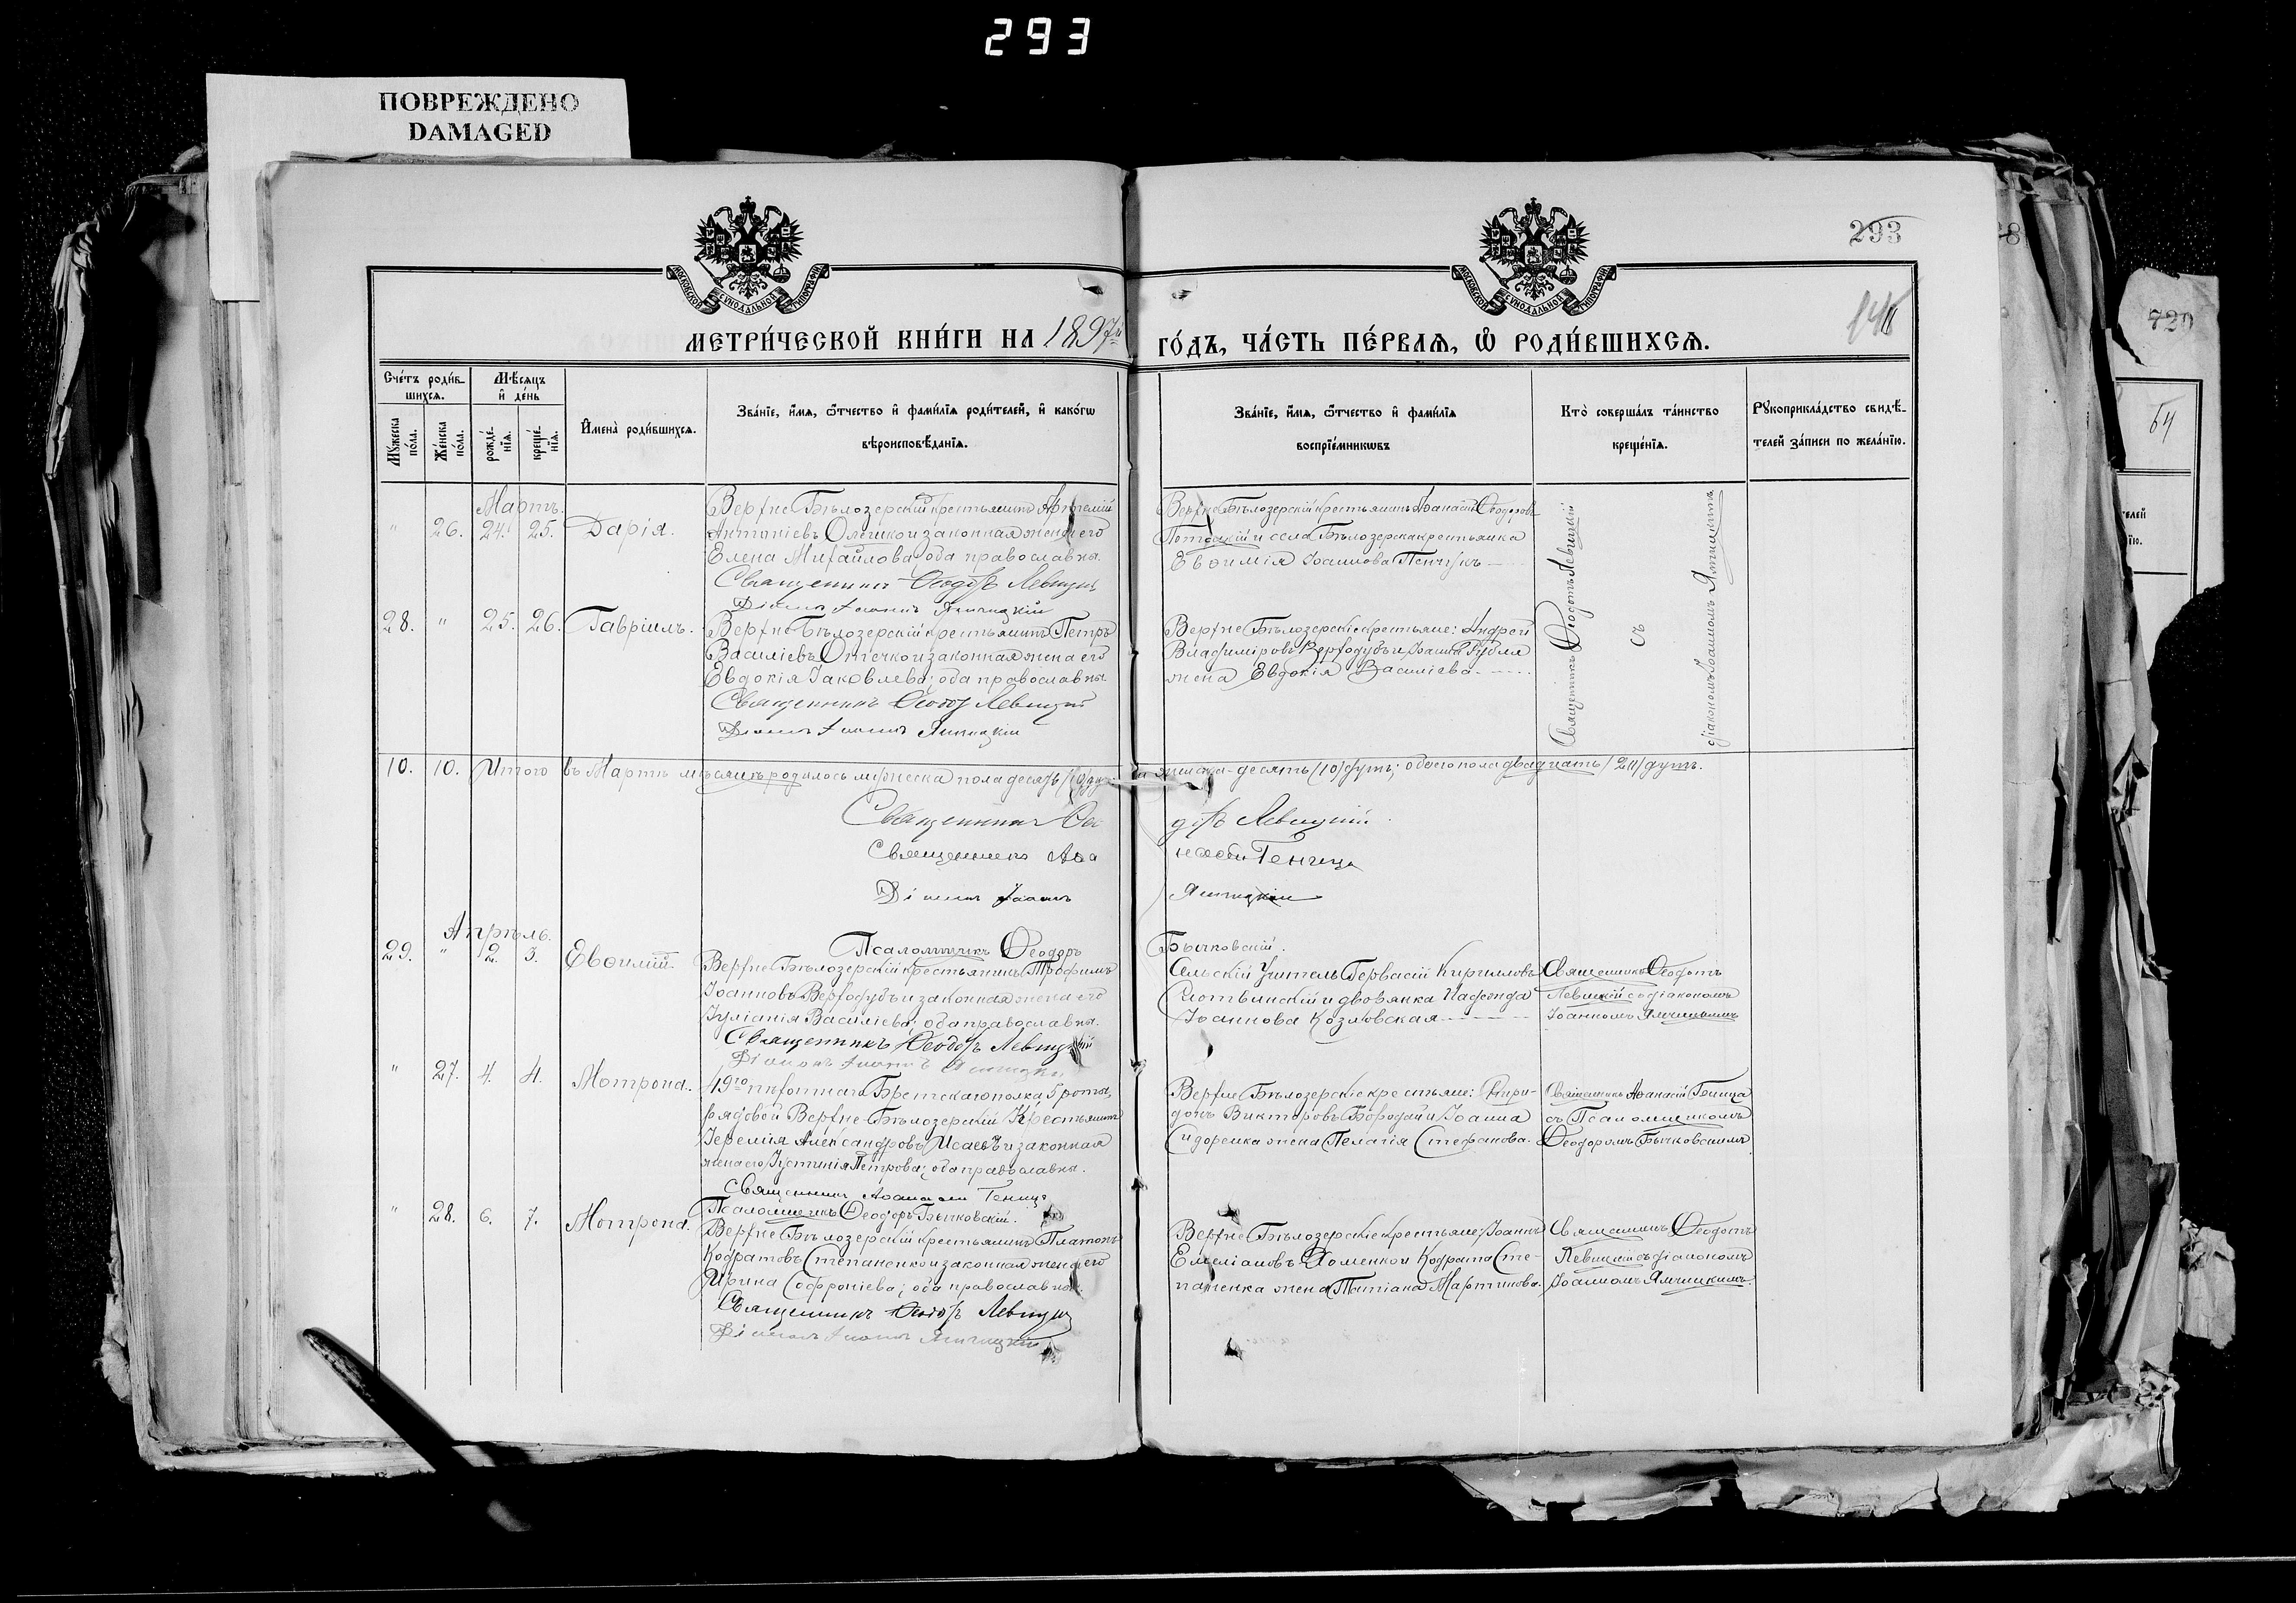 293
ПОВРЕЖДЕНО
DAMAGED
МОСКОВСКОЙ СѴНОДАЛЬНОЙ ТИПОГРАФІИ
МОСКОВСКОЙ СѴНОДАЛЬНОЙ ТИПОГРАФІИ
293
МЕТРИ́ЧЕСКОЙ КНИ́ГИ НА 1897й ГО́ДЪ, ЧА́СТЬ ПЕ́РВАѦ, Ѽ РОДИ́ВШИХСѦ.
720
54
Сче́тъ роди́в-
шихсѧ.
Мѣ́сѧцъ
и҆ де́нь
Мꙋ́жеска по́ла.
Же́нска по́ла.
рожде́-нїѧ.
креще́-нїѧ.
И҆мена̀ роди́вшихсѧ.
Зва́нїе, и҆́мѧ, ѻ҆́тчество и҆ фами́лїѧ роди́телей, и҆ како́гѡ
вѣроисповѣ́данїѧ.
Зва́нїе, и҆́мѧ, ѻ҆́тчество и҆ фами́лїѧ
воспрїе́мникѡвъ
Кто̀ соверша́лъ та́инство
креще́нїѧ.
Рꙋкоприкла́дство свидѣ́-
телей за́писи по жела́нїю.
Мартъ.
" 26. 24. 25. Дарія.
Верхне Бѣлозерскій крестьянинъ Артемій
Антоніевъ Олешко и законная жена его
Елена Михайлова; оба православны.
Священникъ Ѳеодотъ Левицкій
Діаконъ Іоаннъ Ямчицкій
Верхне Бѣлозерскій крестьянинъ Аѳанасій Ѳеодоровъ
и села Бѣлозерка крестьянка
Евѳимія Іоаннова Пенчукъ
Священникъ Ѳеодотъ Левицкій
съ
діакономъ Іоанномъ Ямчицкимъ
28. " 25. 26. Гавріилъ.
Верхне Бѣлозерскій крестьянинъ Петръ
Василіевъ Отечко и законная жена его
Евдокія Іаковлева; оба православны
Священникъ Ѳеодотъ Левицкій
Діаконъ Іоаннъ Ямчицкій
Верхне Бѣлозерскіе крестьяне: Андрей
Владиміровъ Верходубъ и Іоанна
жена Евдокія Василіева.
10. 10. Итого въ Мартѣ мѣсяцѣ родилось мужеска пола десять (10) душъ женска десять (10) душъ; обоего пола двадцать (20) душъ.
Священникъ Ѳеодотъ Левицкій
Священникъ Аѳанасій Геница
Діаконъ Іоаннъ Ямчицкій
Псаломщикъ Ѳеодоръ Бычковскій.
Апрѣль.
29. " 2. 3. Евѳимій.
Верхне Бѣлозерскій крестьянинъ Трофимъ
Іоанновъ Верходубъ и законная жена его
Іуліанія Василіева; оба православны.
Священникъ Ѳеодотъ Левицкій
Діаконъ Іоаннъ Ямчицкій
Сельскій Учитель Гервасій Кирилловъ
и дворянка
Іоаннова Козловская
Священникъ Ѳеодотъ
Левицкій съ діакономъ
Іоанномъ Ямчицкимъ
" 27. 4. 4. Мотрона.
49го пѣхотнаго Брестскаго полка 5 роты,
рядовой Верхне-Бѣлозерскій Крестьянинъ
Іеремія Александровъ Исаевъ и законная
жена его Іустинія Петрова; оба православны.
Священникъ Аѳанасій Геница
Псаломщикъ Ѳеодоръ Бычковскій.
Верхне Бѣлозерскіе крестьяне: Спири-
донъ Викторовъ Бородай и Іоанна
Сидоренка жена Пелагія Стефанова.
Священникъ Аѳанасій Геница
съ Псаломщикомъ
Ѳеодоромъ Бычковскимъ
" 28. 6. 7. Мотрона.
Верхне Бѣлозерскій крестьянинъ Платонъ
Кодратовъ Степаненко и законная жена его
Ирина Софроніева; оба православны.
Священникъ Ѳеодотъ Левицкій
Діаконъ Іоаннъ Ямчицкій
Верхне Бѣлозерскіе крестьяне: Іоаннъ
Емеліановъ Хоменко и Кодрата Сте-
паненка жена Татіана Мартинова.
Священникъ Ѳеодотъ
Левицкій съ діакономъ
Іоанномъ Ямчицкимъ.